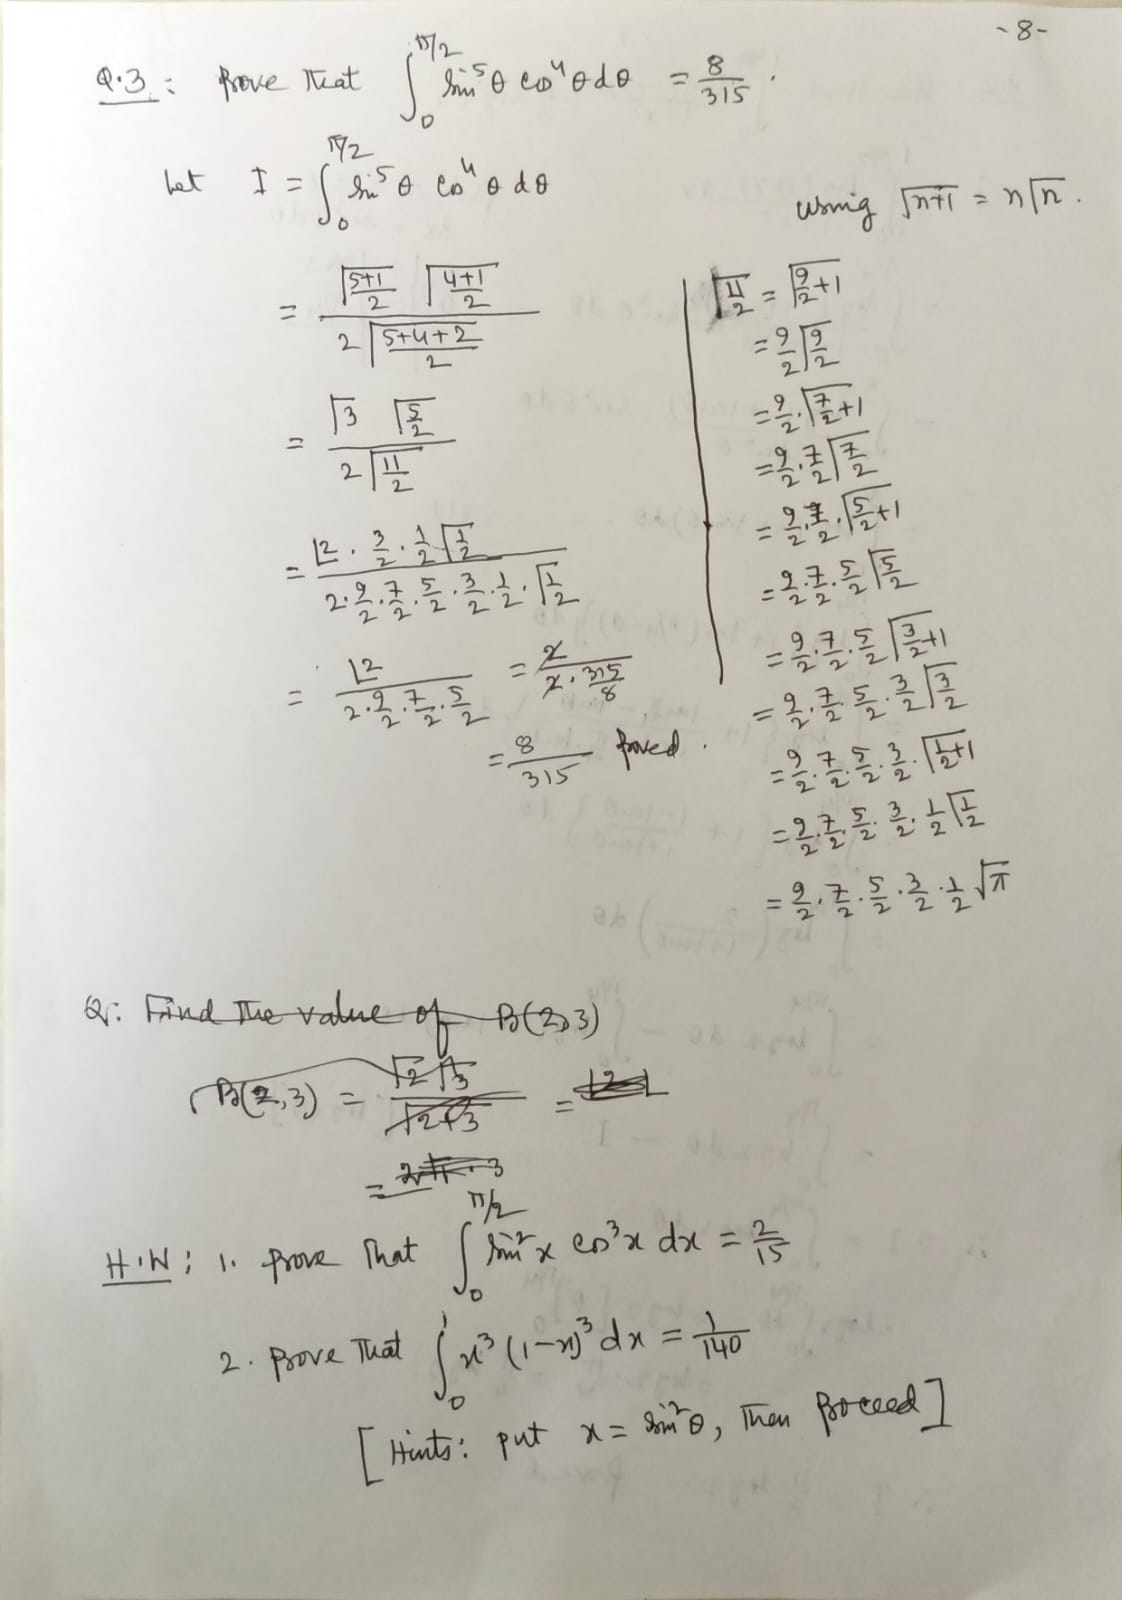 -8-
Q.3 : Prove that ∫₀^{π/2} sin⁵θ cos⁴θ dθ = 8/315 .
Let I = ∫₀^{π/2} sin⁵θ cos⁴θ dθ
= Γ((5+1)/2) Γ((4+1)/2) / 2Γ((5+4+2)/2)
= Γ3 Γ(5/2) / 2Γ(11/2)
= ∟2 · 3/2 · 1/2 Γ(1/2) / 2 · 9/2 · 7/2 · 5/2 · 3/2 · 1/2 · Γ(1/2)
= ∟2 / 2 · 9/2 · 7/2 · 5/2 = 2 / 2 · 315/8
= 8/315 proved .
using Γ(n+1) = nΓn .
Γ(11/2) = Γ(9/2+1)
= 9/2 Γ(9/2)
= 9/2 · Γ(7/2+1)
= 9/2 · 7/2 Γ(7/2)
= 9/2 · 7/2 · Γ(5/2+1)
= 9/2 · 7/2 · 5/2 Γ(5/2)
= 9/2 · 7/2 · 5/2 Γ(3/2+1)
= 9/2 · 7/2 · 5/2 · 3/2 Γ(3/2)
= 9/2 · 7/2 · 5/2 · 3/2 · Γ(1/2+1)
= 9/2 · 7/2 · 5/2 · 3/2 · 1/2 Γ(1/2)
= 9/2 · 7/2 · 5/2 · 3/2 · 1/2 √π
Q: Find the value of B(2,3)
B(2,3) = Γ2 Γ3 / Γ2+3 =
=
H.W : 1. Prove that ∫₀^{π/2} sin²x cos³x dx = 2/15
2. Prove that ∫₀¹ x³ (1-x)³ dx = 1/140
[Hints: put x = sin²θ, then proceed]